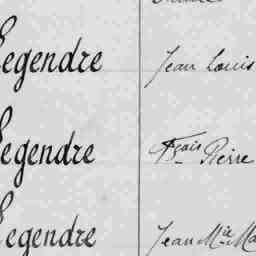 Legendre Jean Louis
Legendre Fçois Pierre
Legendre Jean Mie Ma